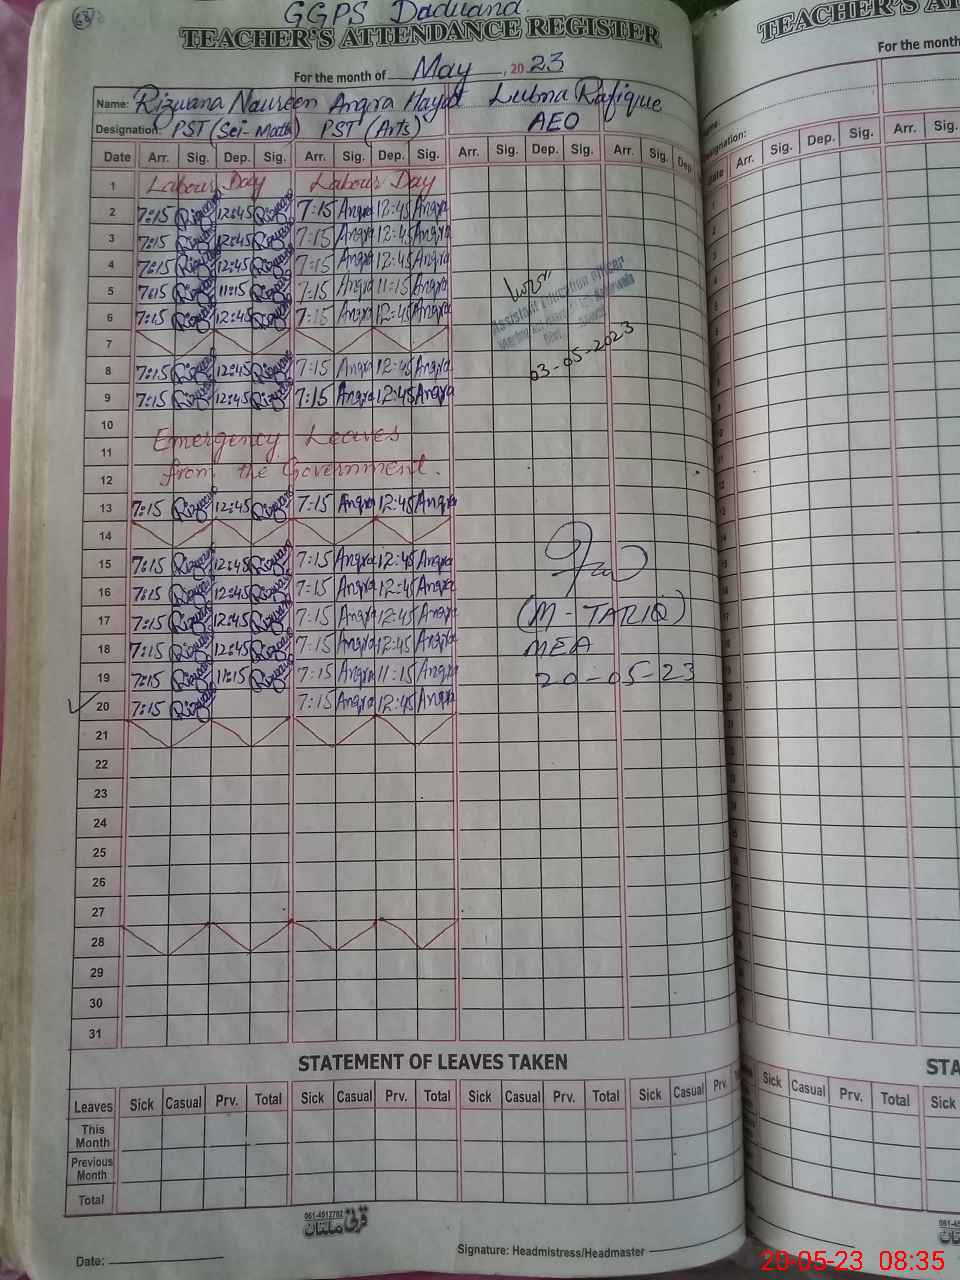 GGPS Daduana.
TEACHER'S ATTENDANCE REGISTER
For the month of May, 2023
Name: Rizwana Naureen Angra Hayat Lubna Rafique
Designation: PST (Sci-Math) PST (Arts) AEO
Date Arr. Sig. Dep. Sig. Arr. Sig. Dep. Sig. Arr. Sig. Dep. Sig. Arr. Sig. Dep
1 Labour Day Labour Day
2 7:15 Rizwana 12:45 Rizwana 7:15 Angra 12:45 Angra
3 7:15 Rizwana 12:45 Rizwana 7:15 Angra 12:45 Angra
4 7:15 Rizwana 12:45 Rizwana 7:15 Angra 12:45 Angra
5 7:15 Rizwana 11:15 Rizwana 7:15 Angra 11:15 Angra
Assistant Education Officer
6 7:15 Rizwana 12:45 Rizwana 7:15 Angra 12:45 Angra
7
03-05-2023
8 7:15 Rizwana 12:45 Rizwana 7:15 Angra 12:45 Angra
9 7:15 Rizwana 12:45 Rizwana 7:15 Angra 12:45 Angra
10
11 Emergency Leaves
12 from the Government.
13 7:15 Rizwana 12:45 Rizwana 7:15 Angra 12:45 Angra
14
15 7:15 Rizwana 12:45 Rizwana 7:15 Angra 12:45 Angra
16 7:15 Rizwana 12:45 Rizwana 7:15 Angra 12:45 Angra
17 7:15 Rizwana 12:45 Rizwana 7:15 Angra 12:45 Angra (M-TARIQ)
18 7:15 Rizwana 12:45 Rizwana 7:15 Angra 12:45 Angra MEA
19 7:15 Rizwana 11:15 Rizwana 7:15 Angra 11:15 Angra 20-05-23
20 7:15 Rizwana 7:15 Angra 12:45 Angra
21
22
23
24
25
26
27
28
29
30
31
STATEMENT OF LEAVES TAKEN
Leaves Sick Casual Prv. Total Sick Casual Prv. Total Sick Casual Prv. Total Sick Casual Prv.
This Month
Previous Month
Total
061-4512782
قریشی ملتان
Date:
Signature: Headmistress/Headmaster
TEACHER'S A
For the month
Designation:
Date Arr. Sig. Dep. Sig. Arr. Sig.
STA
Sick Casual Prv. Total Sick
20-05-23 08:35